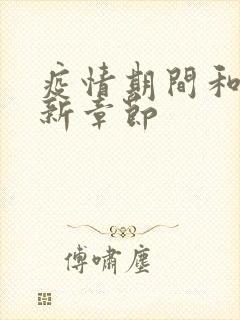 疫情期間和
新章節
傅嘯塵